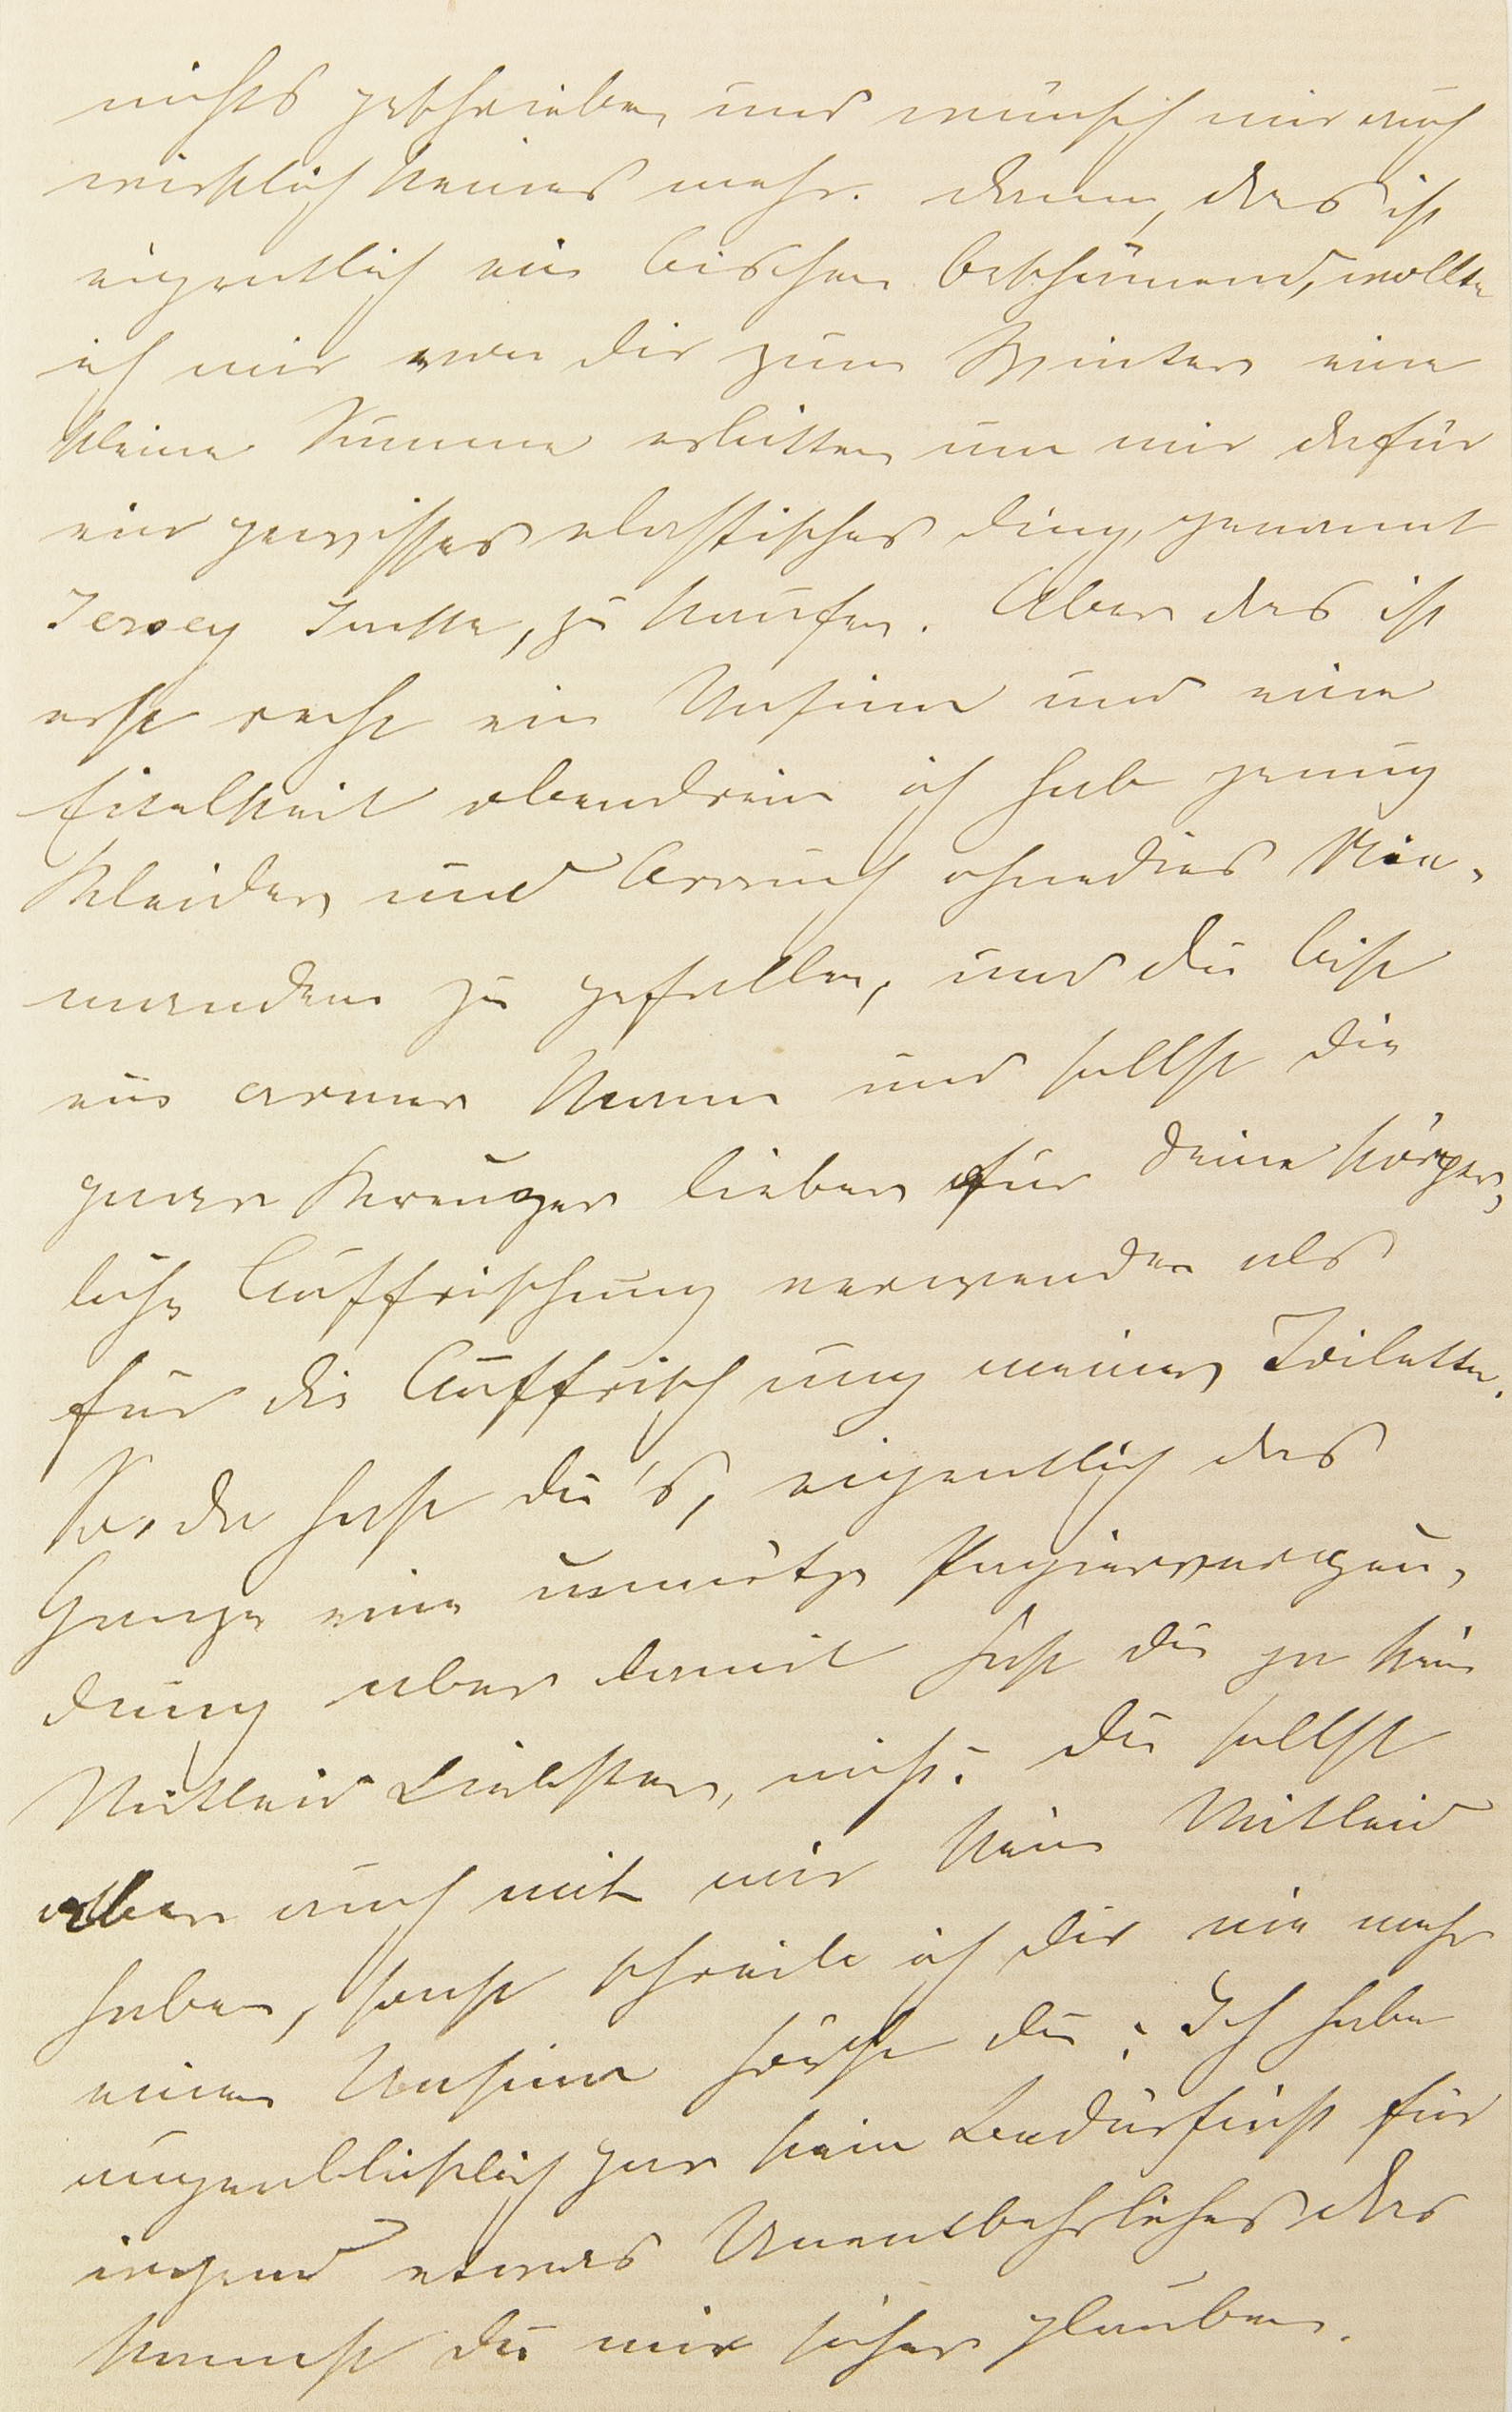 nichts geschrieben und wünsch mir auch
wirklich keines mehr. Dann, das ist
eigentlich ein bischen beschämend, wollte
ich mir von dir zum Winter eine
kleine Summe erbitten um mir dafür
ein gewisses elastisches Ding, genannt
Jersey Taille, zu kaufen. Aber das ist
erst recht ein Unsinn und eine
Eitelkeit obendrein ich hab genug
Kleider und brauch ohnedies Nie-
mandem zu gefallen, und du bist
ein armer Mann und sollst die
paar Kreuzer lieber für deine körper-
liche Auffrischung verwenden als
für die Auffrischung meiner Toilette.
So, da hast du's, eigentlich das
Ganze eine unnütze Papierverschwen-
dung aber damit hast du ja kein
Mitleid Liebster, nicht? Du sollst
aber auch mit mir kein Mitleid
haben, sonst schreibe ich dir nie mehr
einen Unsinn hörst du? Ich habe
augenblicklich gar kein Bedürfniß für
irgend etwas Unentbehrliches das
kannst du mir sicher glauben.